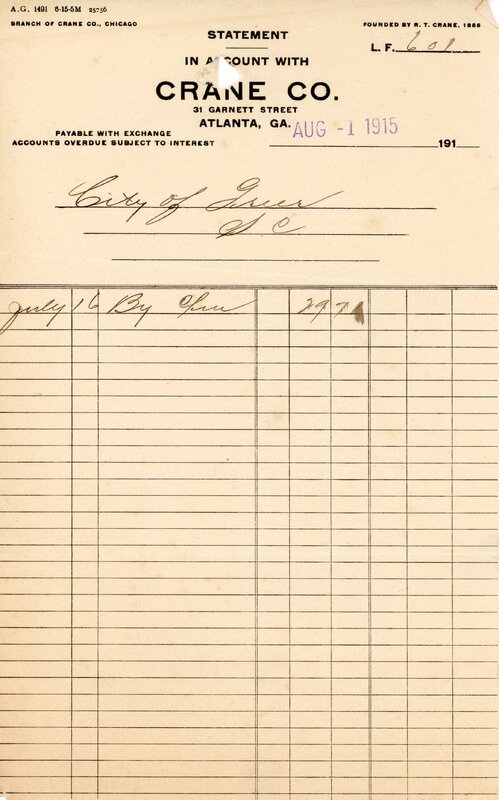 A.G. 1491 6-15-5M 25756
BRANCH OF CRANE CO., CHICAGO
FOUNDED BY R. T. CRANE, 1855
STATEMENT
L. F. 601
IN ACCOUNT WITH
CRANE CO.
31 GARNETT STREET
ATLANTA, GA.
AUG -1 1915
PAYABLE WITH EXCHANGE
ACCOUNTS OVERDUE SUBJECT TO INTEREST
191
City of Greer
S C
July 16 By 29 7